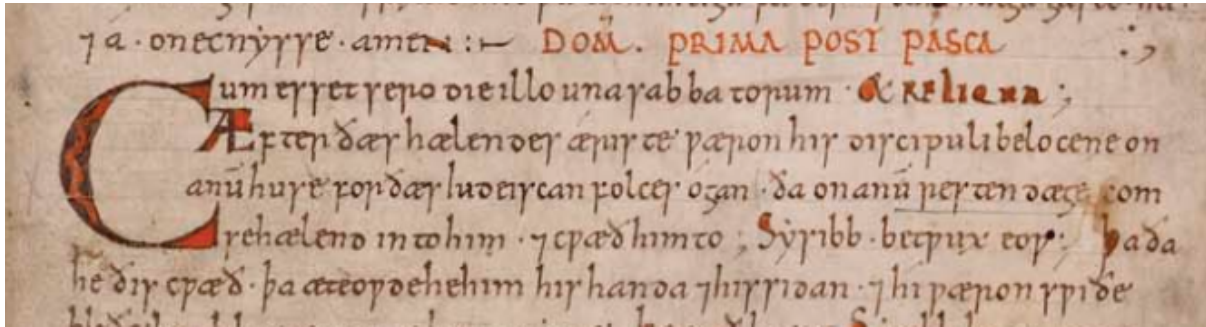 ⁊ á · on ecnysse · amen :⊢ DOM̄. PRIMA POST PASCA
Cum esset sero die illo una sabbatorum · & RELIQUA ;
Æfter ðæs hælendes æriste ƿæron his discipuli belocene on
anū huse for ðæs iudeiscan folces ógan · ða on anū resten dæge com
se hælend in to him · ⁊ cƿæð him to ; Sy sibb · betƿux eoƿ ; Þa ða
he ðis cƿæð · þa æteoƿde he him his handa ⁊ his sidan · ⁊ hi ƿæron sƿiðe